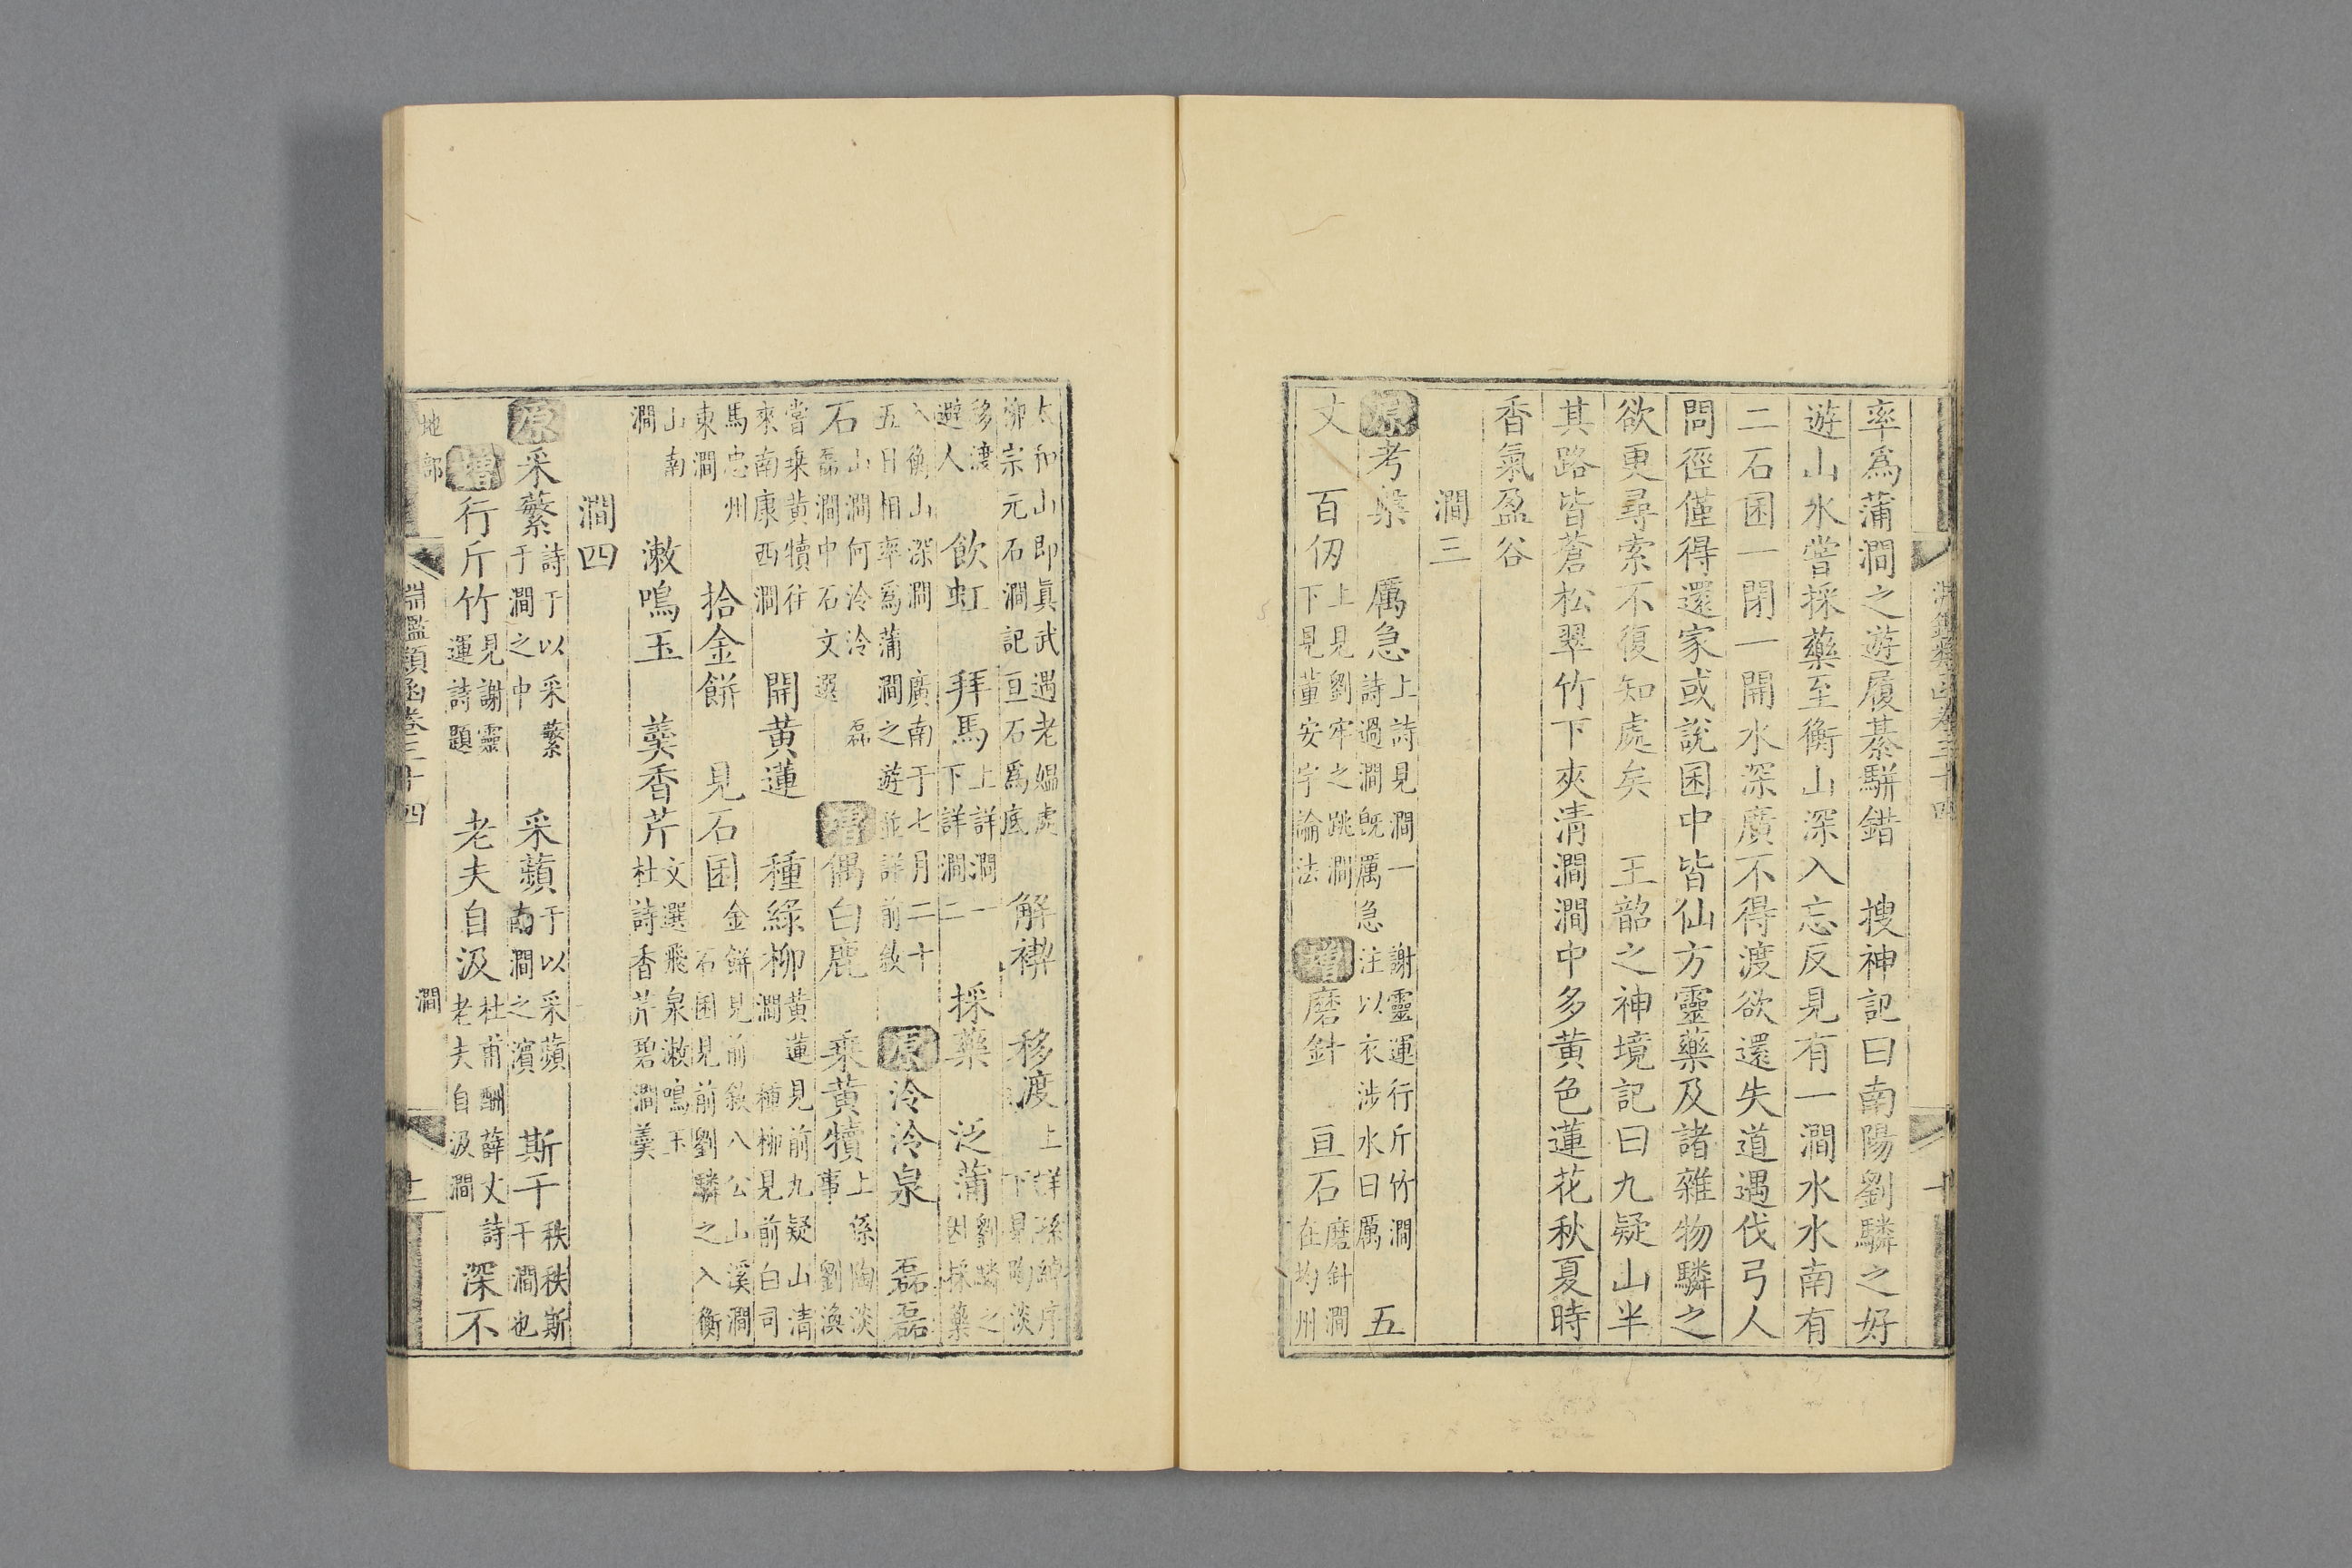 淵鑑類函卷三十四　十
率爲蒲澗之遊屐綦駢錯　搜神記曰南陽劉驎之好
遊山水嘗採藥至衡山深入忘反見有一澗水水南有
二石囷一閉一開水深廣不得渡欲還失道遇伐弓人
問徑僅得還家或說囷中皆仙方靈藥及諸雜物驎之
欲更尋索不復知處矣　王韶之神境記曰九疑山半
其路皆蒼松翠竹下夾清澗澗中多黃色蓮花秋夏時
香氣盈谷
澗三
原考槃　厲急上詩見澗一　謝靈運行斤竹澗詩過澗旣厲急注以衣涉水曰厲　五
丈　百仞上見劉牢之跳澗下見董安宇論法　增磨針　亘石磨針澗在均州
太和山即眞武遇老媼處柳宗元石澗記亘石爲底　解褉　移渡上詳孫綽序下見陶淡
移渡避人　飲虹　拜馬上詳澗一下詳澗二　採藥　泛蒲劉驎之因採藥
入衡山深澗　廣南于七月二十五日相率爲蒲澗之遊並詳前敘　原泠泠泉　磊磊
石山澗何泠泠　磊磊澗中石文選　增偶白鹿　乘黃犢上係陶淡事　劉渙
嘗乘黃犢往來南康西澗　開黃蓮　種綠柳黃蓮見前九疑山清澗　種柳見前白司
馬忠州東澗　拾金餅　見石囷金餅見前敘八公山溪澗石囷見前劉驎之入衡
山南澗　漱鳴玉　羹香芹文選飛泉漱鳴玉杜詩香芹碧澗羹
澗四
原采蘩詩于以采蘩于澗之中　采蘋于以采蘋南澗之濱　斯干秩秩斯干干澗也
增行斤竹見謝靈運詩題　老夫自汲杜甫酬薛丈詩老夫自汲澗　深不
地部　淵鑑類函卷三十四　澗　十一